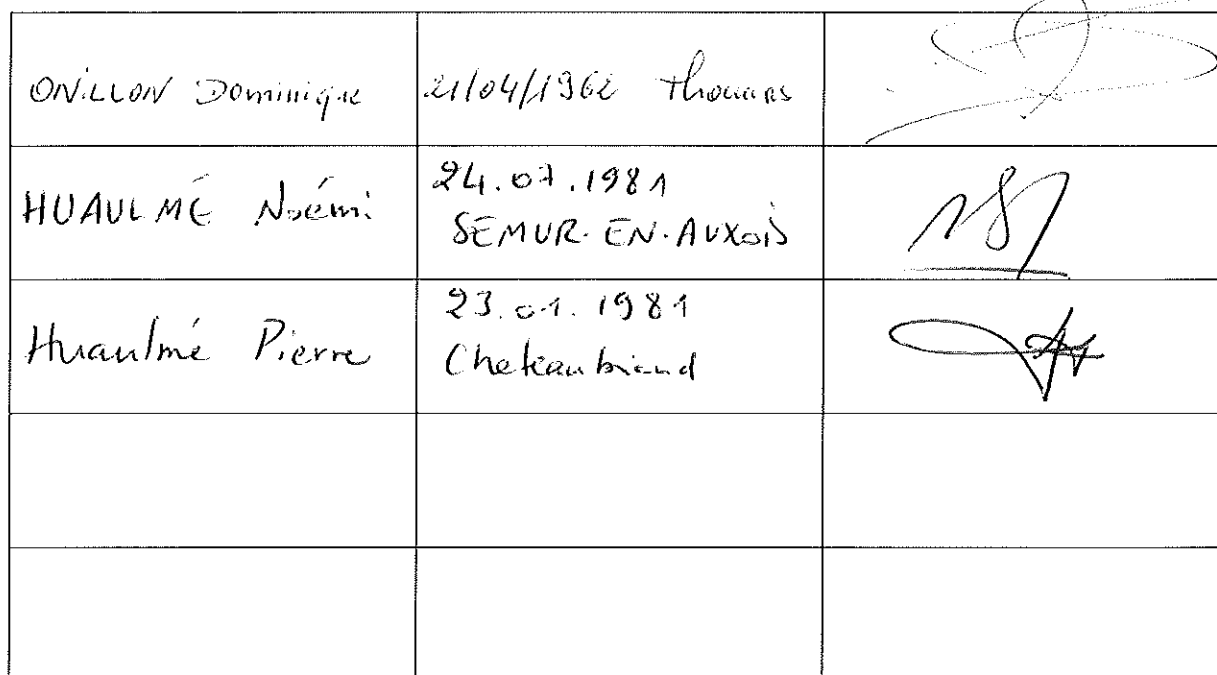 ONILLON Dominique 21/04/1962 Thouars
HUAULMÉ Noémi 24.07.1981
SEMUR-EN-AUXOIS
Huaulmé Pierre 23.01.1981
Chateaubriand